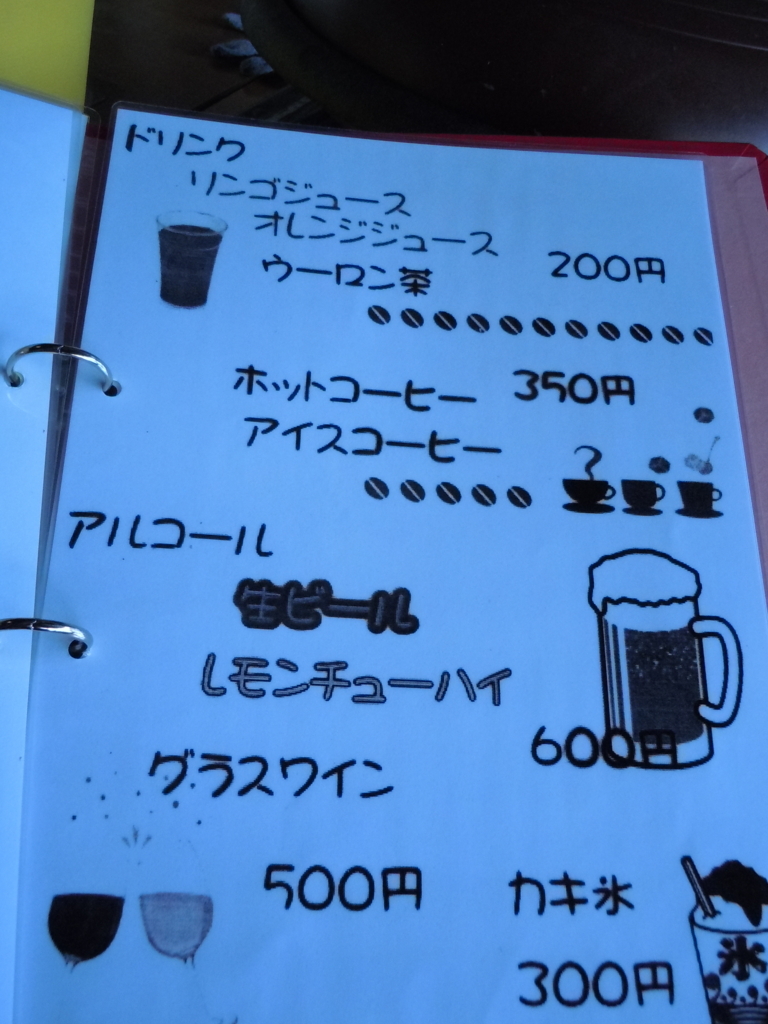 ドリンク
リンゴジュース
オレンジジュース
ウーロン茶 200円
ホットコーヒー 350円
アイスコーヒー
アルコール
生ビール
レモンチューハイ
600円
グラスワイン
500円
カキ氷
300円
氷